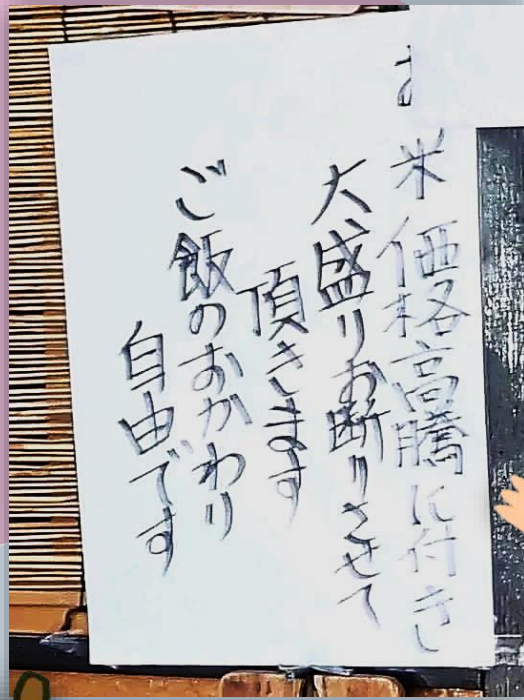 お米価格高騰に付きし
大盛りお断りさせて
頂きます
ご飯のおかわり
自由です